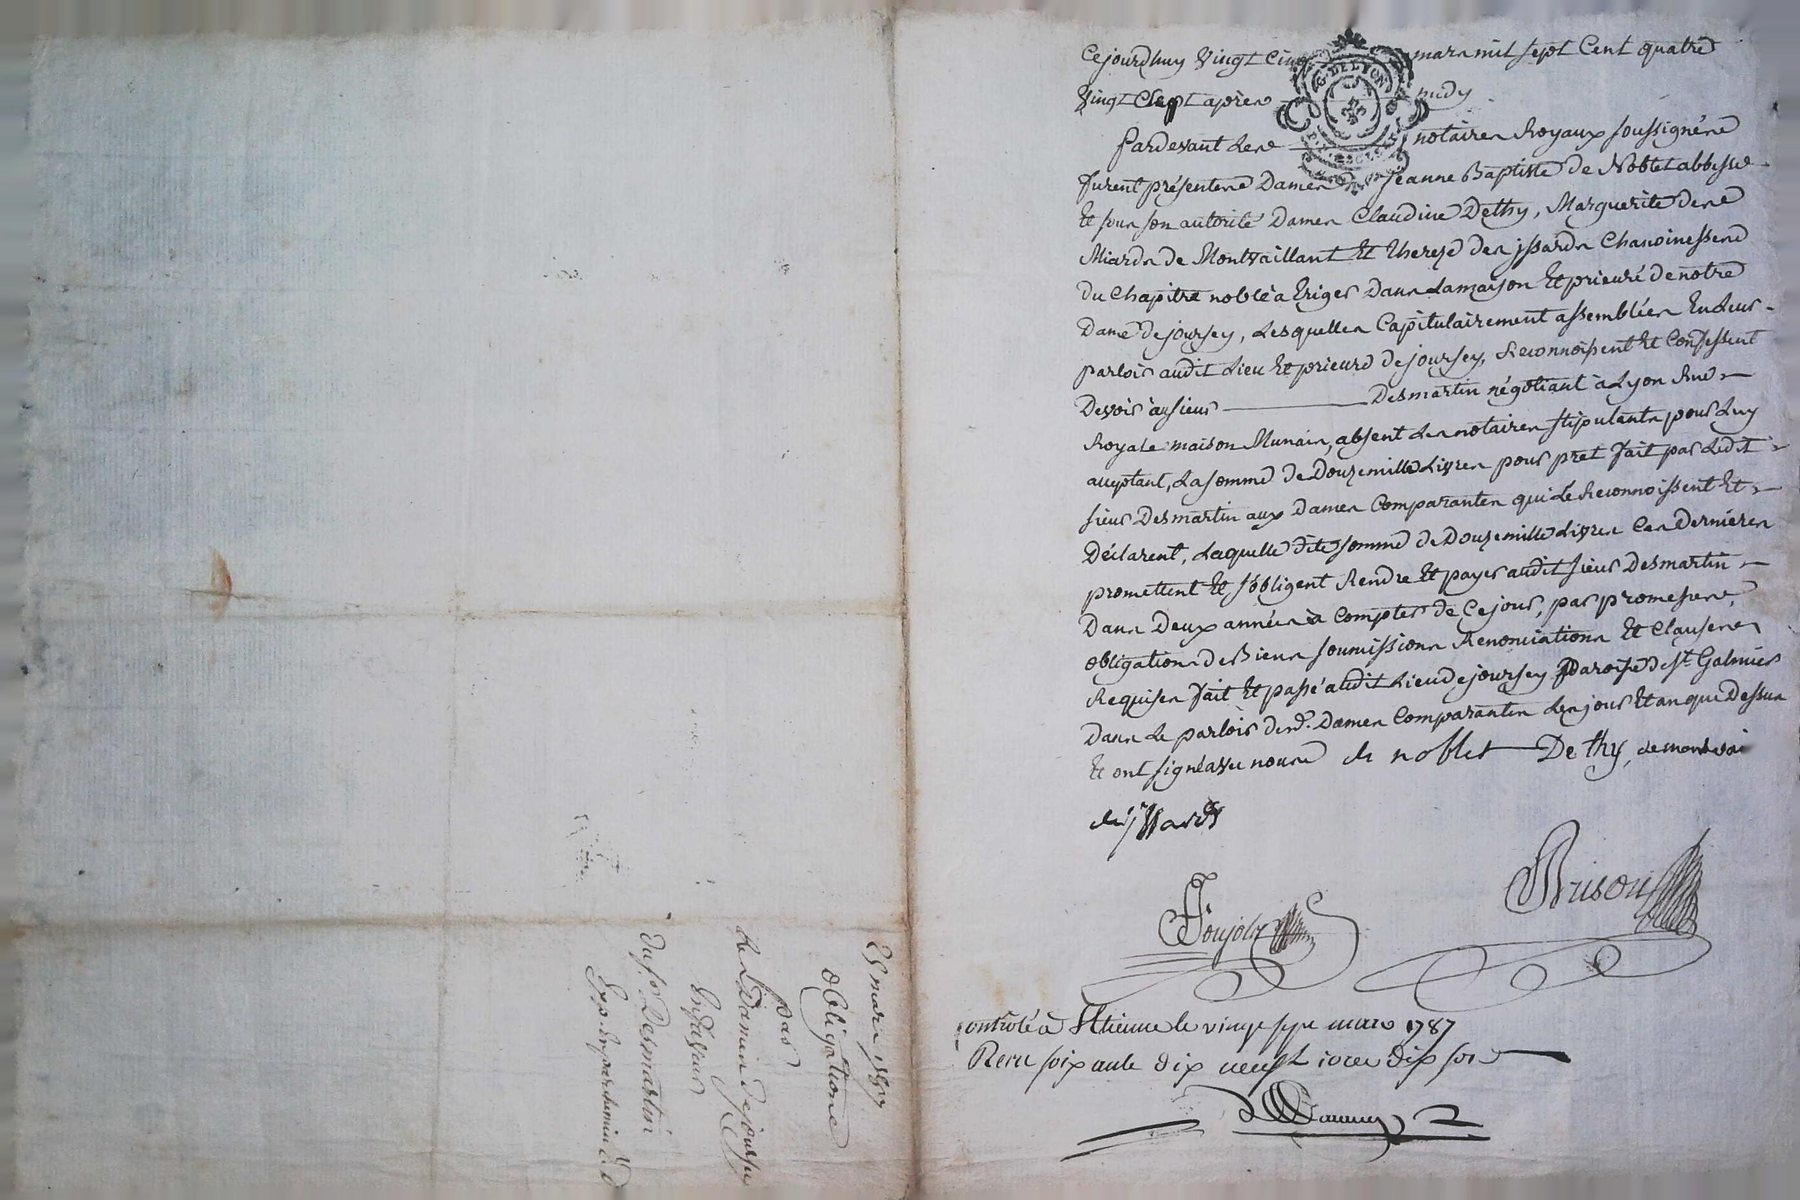 Cejourdhuy Vingt Cinq mars mil sept Cent quatre
Vingt Sept après midy
Pardevant les notaires Royaux soussignés
furent présentes Dames Jeanne Baptiste de Noblet abbesse
Et sous son autorité Dames Claudine Dethy, Marguerite des
Miards de Montvaillant Et Therese des jssards Chanoinesses
du Chapitre noble à Eriger Dans la maison Et prieuré de notre
Dame de joursey, Lesquelles Capitulairement assemblées En leur
parloir audit Lieu Et prieuré de joursey, Reconnoissent Et Confessent
Devoir au sieur Desmartin négotiant à Lyon Rue
Royale maison Munain, absent Les notaires stipulants pour Luy
acceptant, La somme de Douze mille Livres pour prêt fait par Ledit
sieur Desmartin aux Dames Comparantes qui Le Reconnoissent Et
Déclarent, Laquelle dite somme de Douze mille Livres Ces Dernières
promettent Et s'obligent Rendre Et payer audit sieur Desmartin
Dans Deux années à Compter de Ce jour, par promesses,
obligations de Biens soumissions Renonciations Et Clauses
Requises fait Et passé audit Lieu de joursey Paroisse de St. Galmier
Dans Le parloir desd. Dames Comparantes Les jour Et an que Dessus
Et ont signé avec nous de noblet De thy, de montvai
des jssards
Poujolz Brison
Controlé à St Etienne le vingt sept mars 1787
Recu soixante dix neuf livres dix sols
25 mars 1787
Obligations
par
Les Dames de joursey
En faveur
du sr. Desmartin
Exp. En parchemin